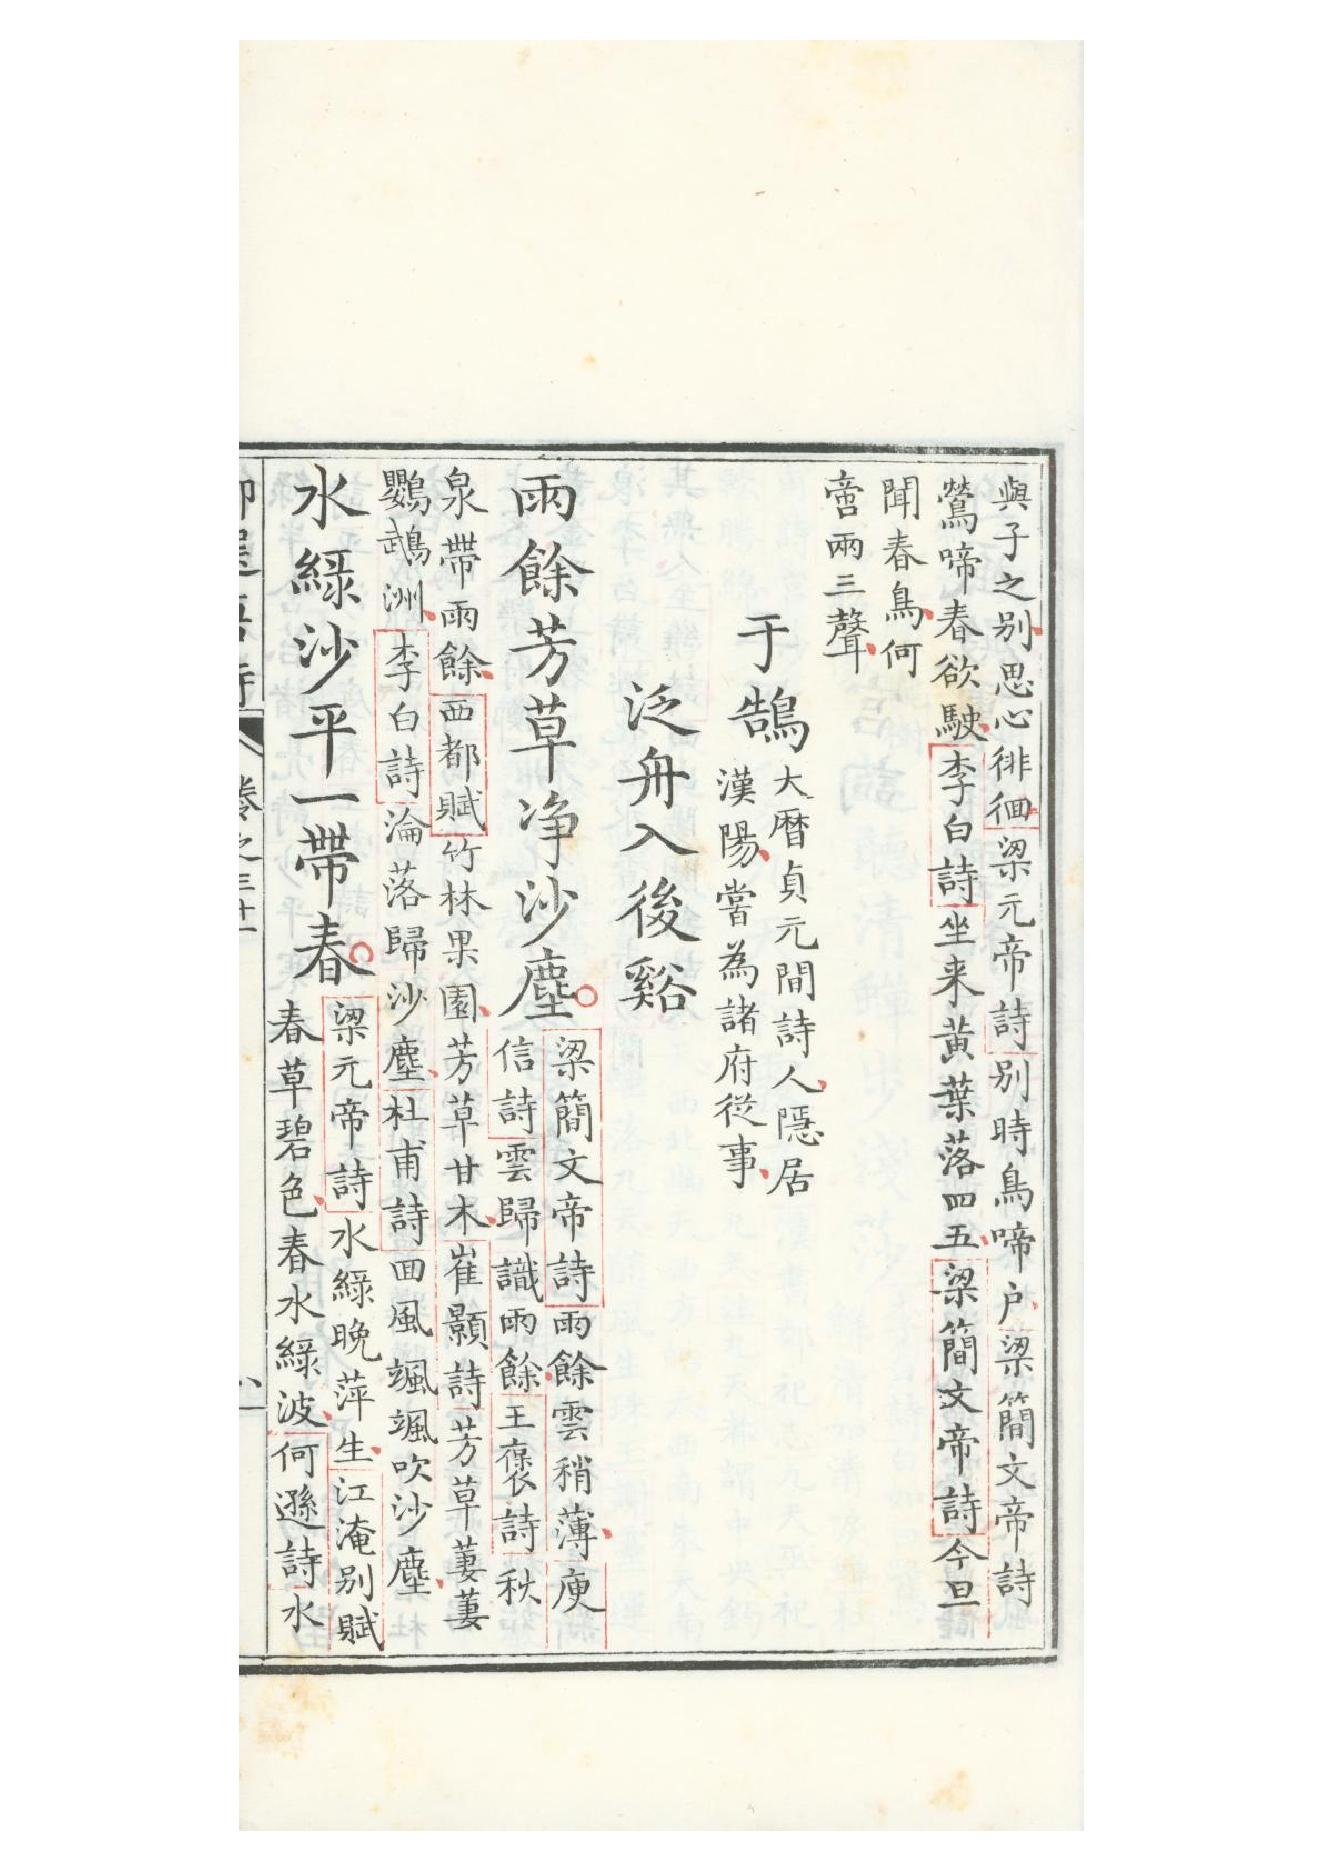 與子之別思心徘徊梁元帝詩別時鳥啼戶梁簡文帝詩
鶯啼春欲駛李白詩坐来黃葉落四五梁簡文帝詩今旦
聞春鳥何
啻兩三聲
于鵠
大曆貞元間詩人隱居
漢陽嘗為諸府從事
泛舟入後谿
雨餘芳草净沙塵
梁簡文帝詩雨餘雲稍薄庾
信詩雲歸識雨餘王褒詩秋
泉帶雨餘西都賦竹林果園芳草甘木崔顥詩芳草萋萋
鸚鵡洲李白詩淪落歸沙塵杜甫詩回風颯颯吹沙塵
水綠沙平一帶春
梁元帝詩水綠晚萍生江淹別賦
春草碧色春水綠波何遜詩水
卷之三十一